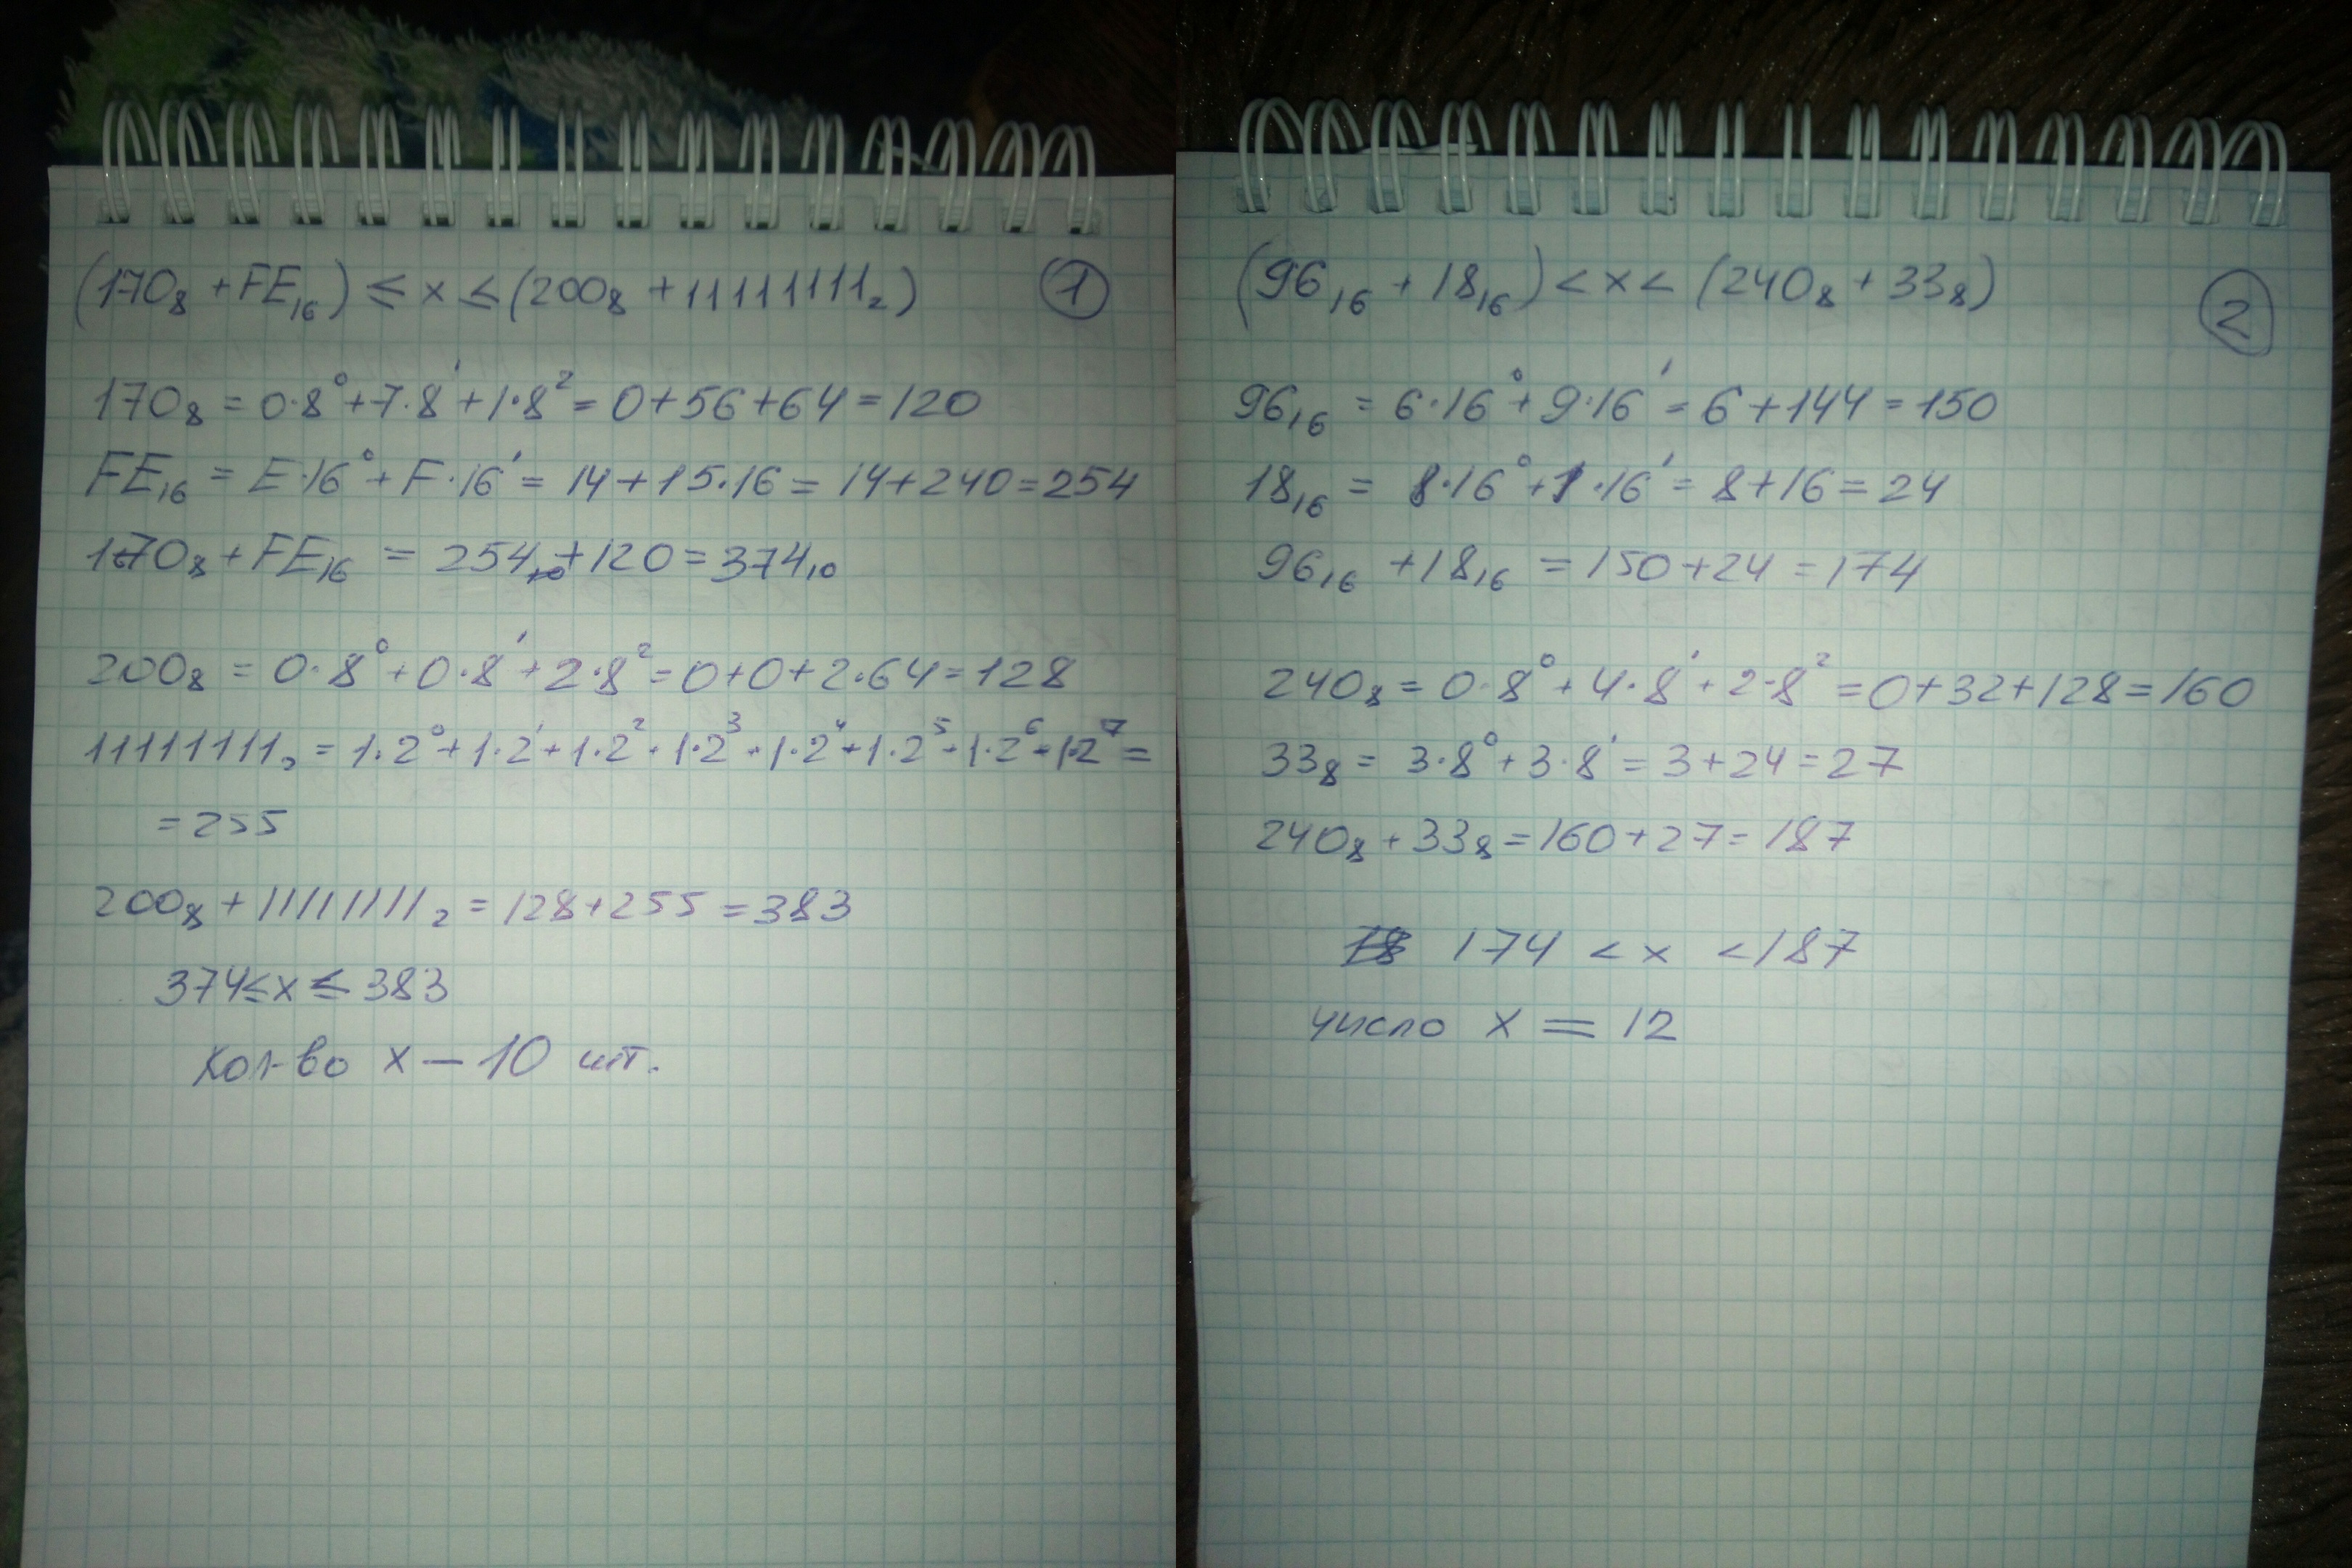 (170₈ + FE₁₆) ≤ x ≤ (200₈ + 11111111₂)
1
170₈ = 0·8⁰+7·8¹+1·8² = 0+56+64 = 120
FE₁₆ = E·16⁰ + F·16¹ = 14+15·16 = 14+240 = 254
170₈ + FE₁₆ = 254₁₀+120 = 374₁₀
200₈ = 0·8⁰+0·8¹+2·8² = 0+0+2·64 = 128
11111111₂ = 1·2⁰+1·2¹+1·2²+1·2³+1·2⁴+1·2⁵+1·2⁶+1·2⁷ =
= 255
200₈ + 11111111₂ = 128+255 = 383
374 ≤ x ≤ 383
Кол-во x – 10 шт.
(96₁₆ + 18₁₆) < x < (240₈ + 33₈)
2
96₁₆ = 6·16⁰ + 9·16¹ = 6+144 = 150
18₁₆ = 8·16⁰ + 1·16¹ = 8+16 = 24
96₁₆ + 18₁₆ = 150+24 = 174
240₈ = 0·8⁰ + 4·8¹ + 2·8² = 0+32+128 = 160
33₈ = 3·8⁰ + 3·8¹ = 3+24 = 27
240₈ + 33₈ = 160+27 = 187
174 < x < 187
число x = 12